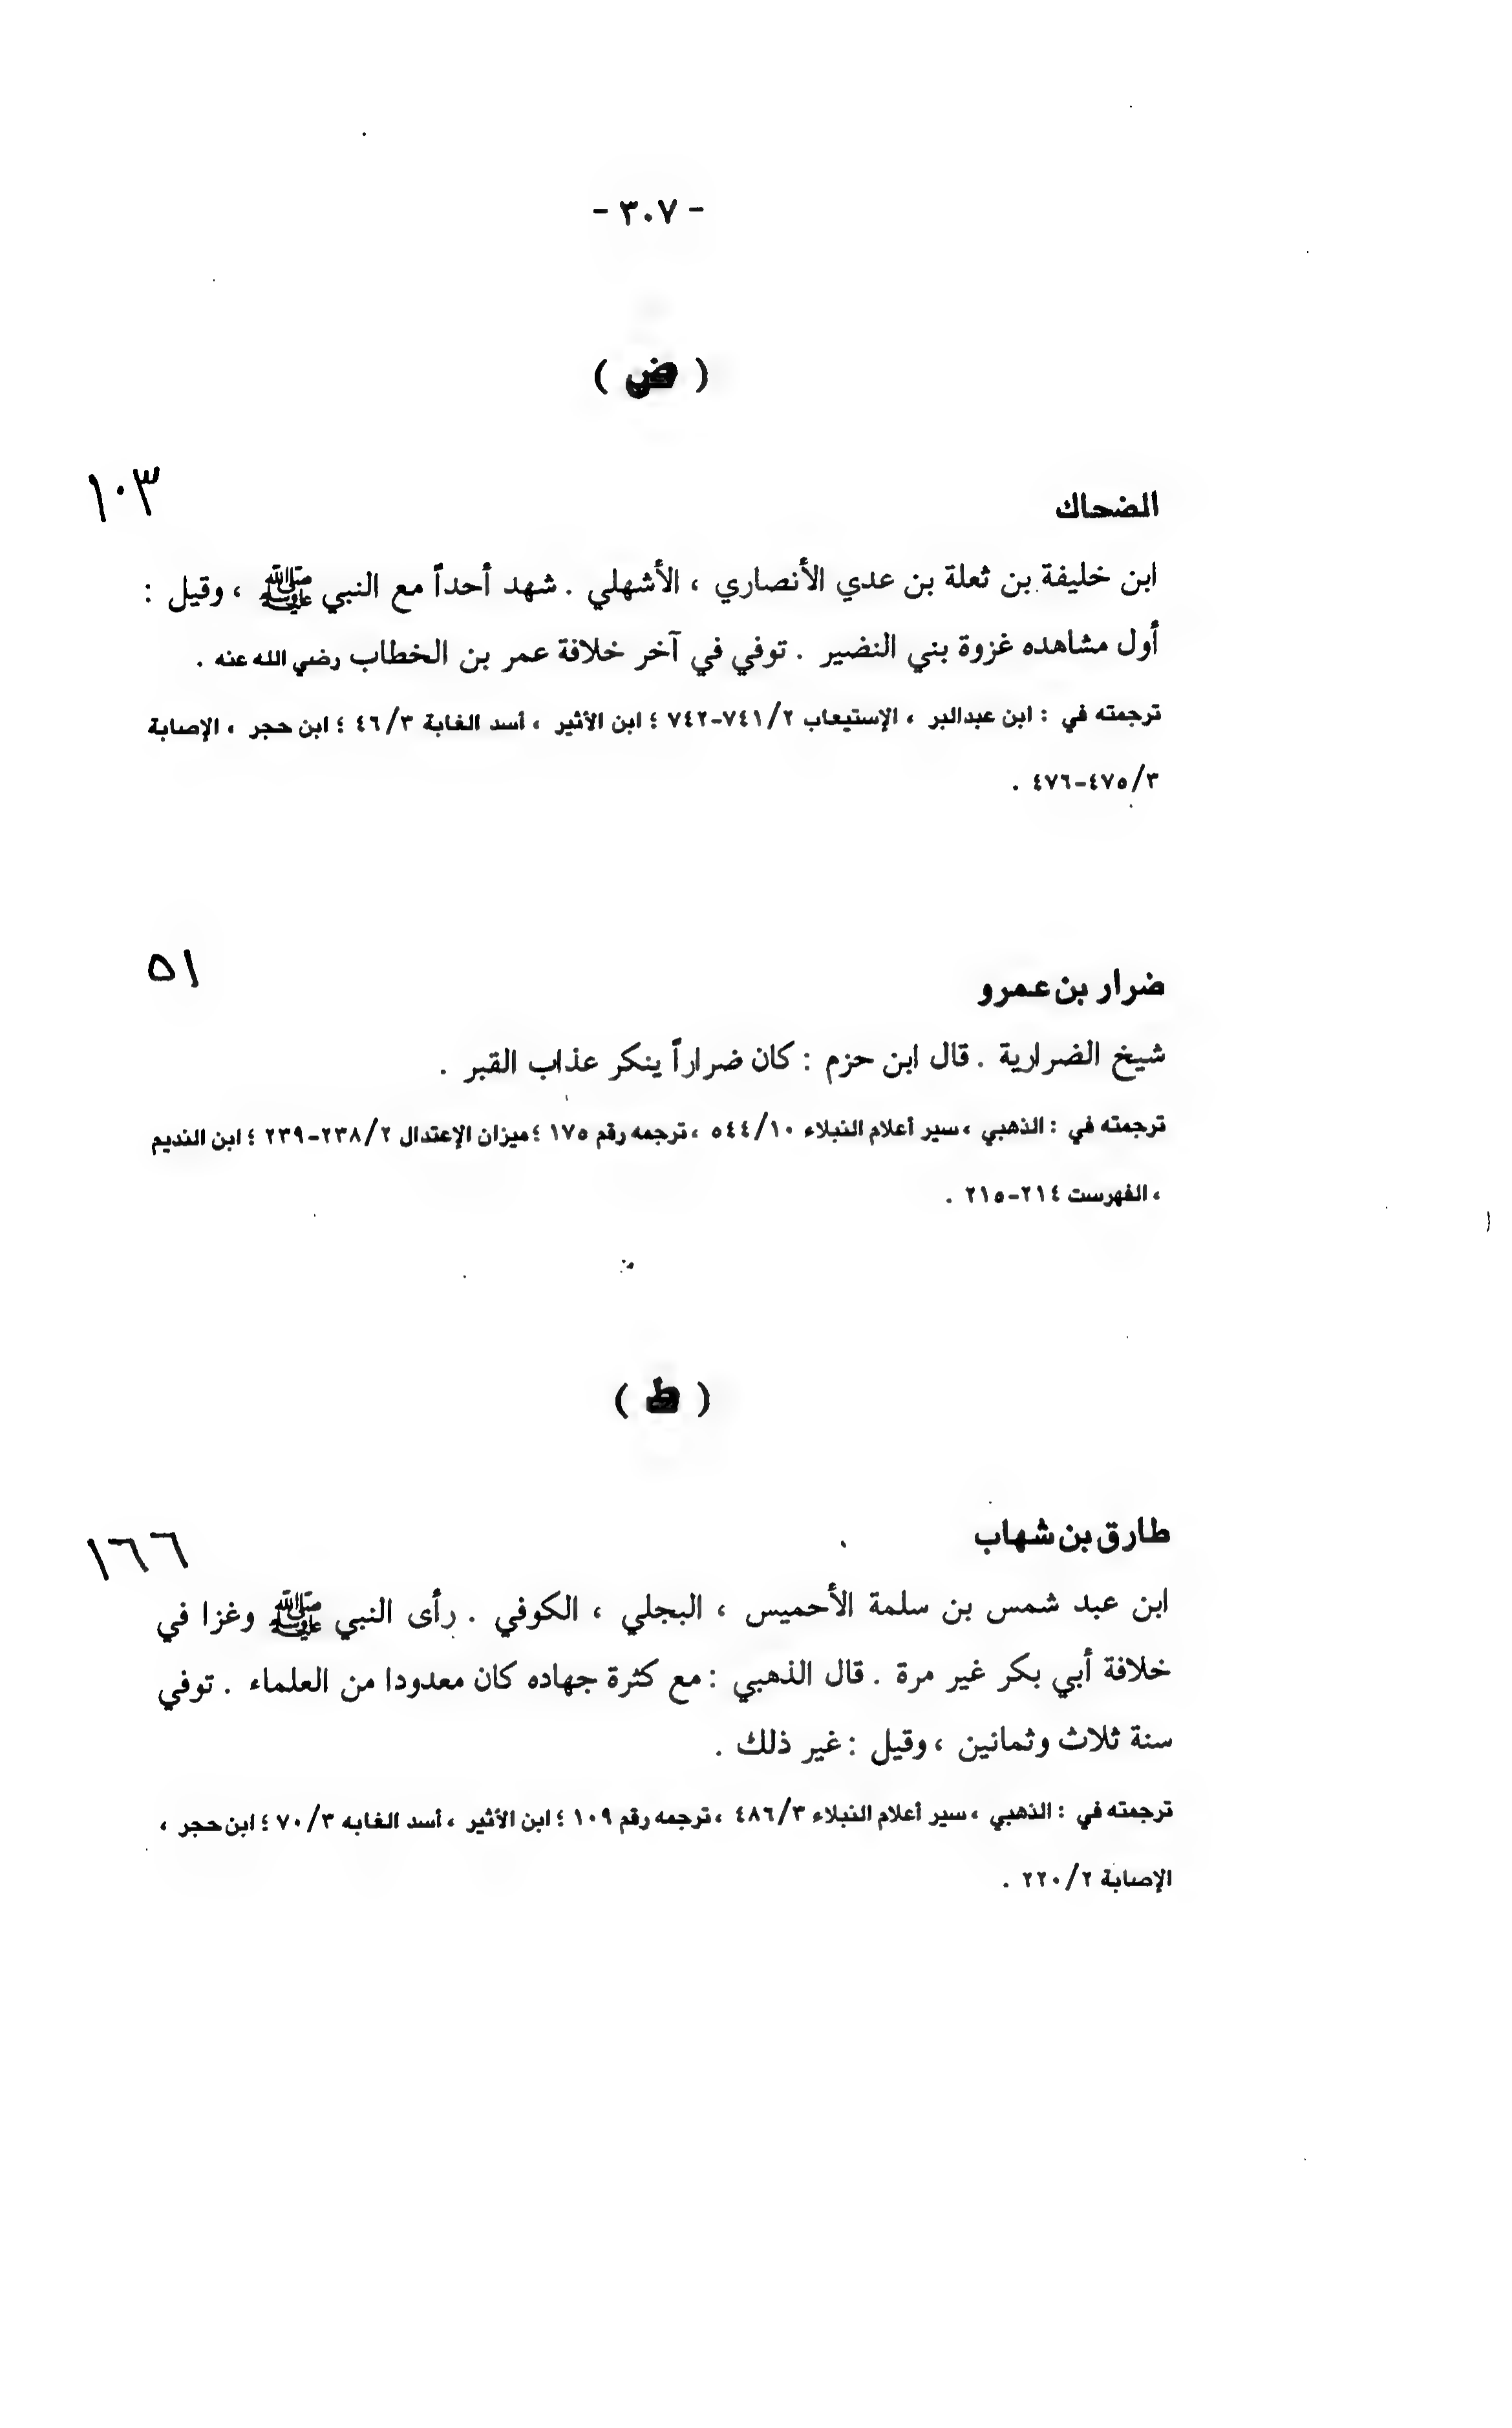 - ٣٠٧ -
( ض )
الضحاك ١٠٣
ابن خليفة بن ثعلة بن عدي الأنصاري ، الأشهلي . شهد أحداً مع النبي ﷺ ، وقيل :
أول مشاهده غزوة بني النضير . توفي في آخر خلافة عمر بن الخطاب رضي الله عنه .
ترجمته في : ابن عبدالبر ، الإستيعاب ٧٤١/٢-٧٤٢ ؛ ابن الأثير ، أسد الغابة ٤٦/٣ ؛ ابن حجر ، الإصابة
٤٧٥/٣-٤٧٦ .
ضرار بن عمرو ٥١
شيخ الضرارية . قال ابن حزم : كان ضراراً ينكر عذاب القبر .
ترجمته في : الذهبي ، سير أعلام النبلاء ٥٤٤/١٠ ، ترجمه رقم ١٧٥ ؛ ميزان الإعتدال ٢٣٨/٢-٢٣٩ ؛ ابن النديم
، الفهرست ٢١٤-٢١٥ .
( ط )
طارق بن شهاب ١٦٦
ابن عبد شمس بن سلمة الأحميس ، البجلي ، الكوفي . رأى النبي ﷺ وغزا في
خلافة أبي بكر غير مرة . قال الذهبي : مع كثرة جهاده كان معدودا من العلماء . توفي
سنة ثلاث وثمانين ، وقيل : غير ذلك .
ترجمته في : الذهبي ، سير أعلام النبلاء ٤٨٦/٣ ، ترجمه رقم ١٠٩ ؛ ابن الأثير ، أسد الغابه ٧٠/٣ ؛ ابن حجر ،
الإصابة ٢٢٠/٢ .